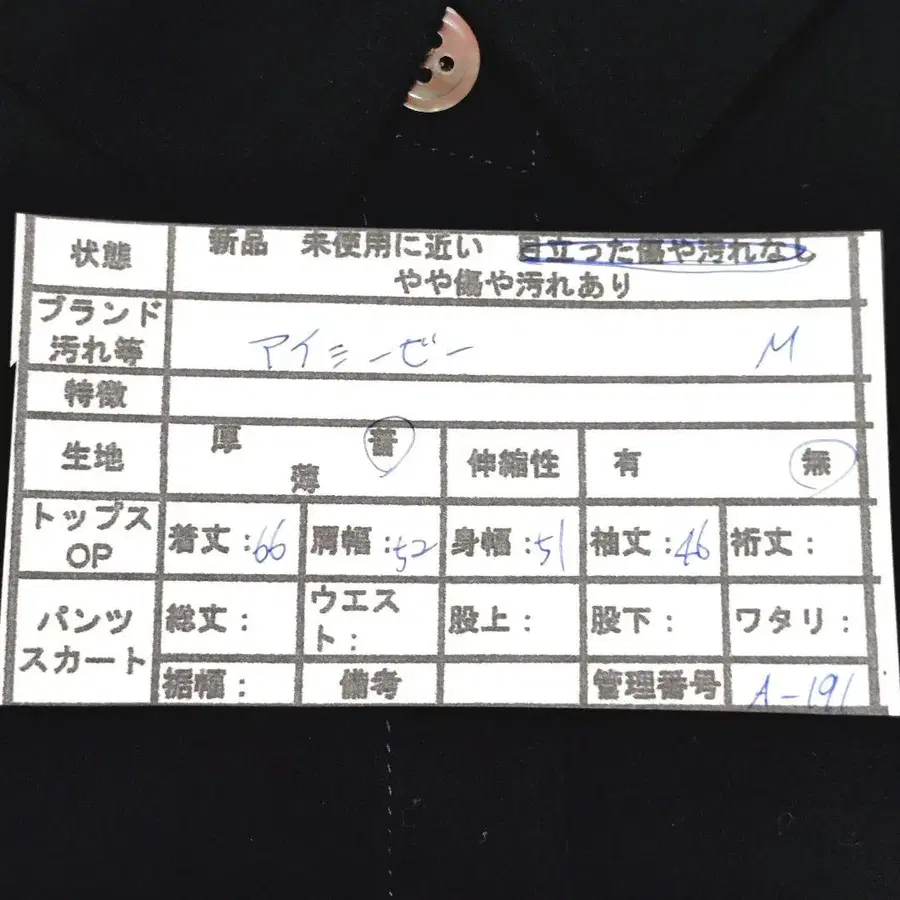 状態 新品 未使用に近い 目立った傷や汚れなし
やや傷や汚れあり
ブランド
汚れ等 アイシービー M
特徴
生地 厚 普 薄 伸縮性 有 無
トップス
OP 着丈:66 肩幅:52 身幅:51 袖丈:46 裄丈:
パンツ
スカート 総丈: ウエス
ト: 股上: 股下: ワタリ:
裾幅: 備考 管理番号 A-191